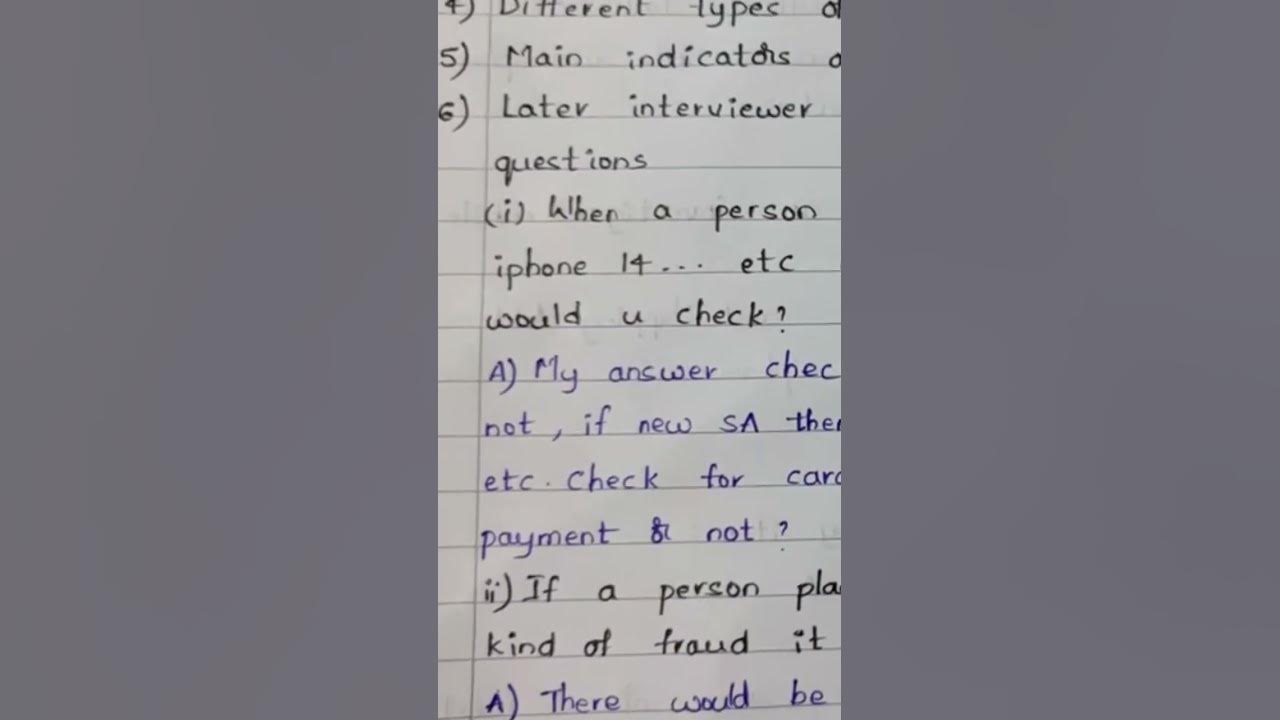 4) Different types of
5) Main indicators o
6) Later interviewer
questions
(i) When a person
iphone 14... etc
would u check?
A) My answer chec
not, if new SA then
etc. Check for card
payment & not?
ii) If a person pla
kind of fraud it
A) There would be